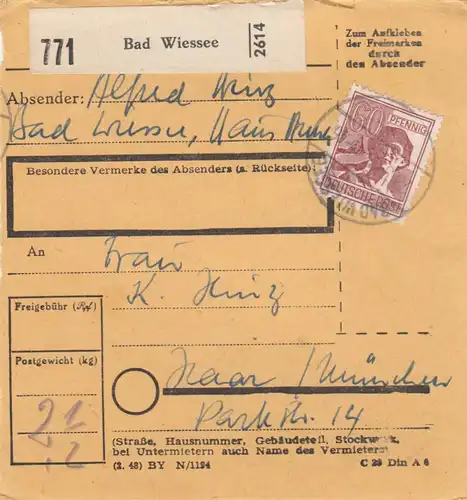 771 Bad Wiessee 2614
Zum Aufkleben
der Freimarken
durch
den Absender
Absender: Alfred Hinz
Bad Wiessee, Haus
60 PFENNIG
DEUTSCHE POST
Besondere Vermerke des Absenders (s. Rückseite)
An Frau
K. Hinz
Freigebühr (Rpf)
Postgewicht (kg)
Haar / München
21
Parkstr. 14
(Straße, Hausnummer, Gebäudeteil, Stockwerk,
bei Untermietern auch Name des Vermieters)
(2. 48) BY N/1194 C 28 Din A 6